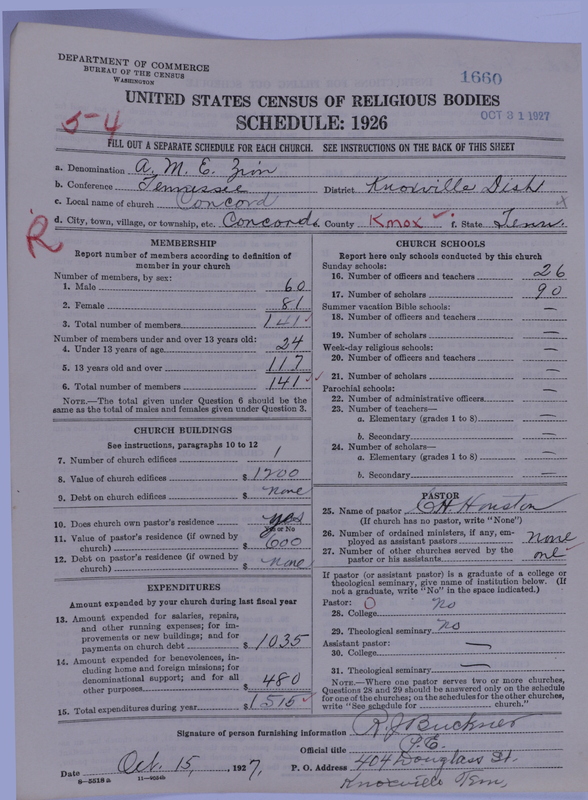 DEPARTMENT OF COMMERCE
BUREAU OF THE CENSUS
WASHINGTON
1660
UNITED STATES CENSUS OF RELIGIOUS BODIES
OCT 31 1927
5-4
SCHEDULE: 1926
FILL OUT A SEPARATE SCHEDULE FOR EACH CHURCH. SEE INSTRUCTIONS ON THE BACK OF THIS SHEET
a. Denomination A. M. E. Zion
b. Conference Tennessee District Knoxville Dist
c. Local name of church Concord x
d. City, town, village, or township, etc. Concord e. County Knox f. State Tenn.
R
MEMBERSHIP
Report number of members according to definition of
member in your church
Number of members, by sex:
1. Male 60
2. Female 81
3. Total number of members 141
Number of members under and over 13 years old:
4. Under 13 years of age 24
5. 13 years old and over 117
6. Total number of members 141
NOTE.—The total given under Question 6 should be the
same as the total of males and females given under Question 3.
CHURCH BUILDINGS
See instructions, paragraphs 10 to 12
7. Number of church edifices 1
8. Value of church edifices $ 1200
9. Debt on church edifices $ none
10. Does church own pastor's residence yes
Yes or No
11. Value of pastor's residence (if owned by
church) $ 600
12. Debt on pastor's residence (if owned by
church) $ none
EXPENDITURES
Amount expended by your church during last fiscal year
13. Amount expended for salaries, repairs,
and other running expenses; for im-
provements or new buildings; and for
payments on church debt $ 1035
14. Amount expended for benevolences, in-
cluding home and foreign missions; for
denominational support; and for all
other purposes $ 480
15. Total expenditures during year $ 1515
CHURCH SCHOOLS
Report here only schools conducted by this church
Sunday schools:
16. Number of officers and teachers 26
17. Number of scholars 90
Summer vacation Bible schools:
18. Number of officers and teachers —
19. Number of scholars —
Week-day religious schools:
20. Number of officers and teachers —
21. Number of scholars —
Parochial schools:
22. Number of administrative officers —
23. Number of teachers—
a. Elementary (grades 1 to 8) —
b. Secondary —
24. Number of scholars—
a. Elementary (grades 1 to 8) —
b. Secondary —
PASTOR
25. Name of pastor C H. Houston
(If church has no pastor, write "None")
26. Number of ordained ministers, if any, em-
ployed as assistant pastors none
27. Number of other churches served by the
pastor or his assistants one
If pastor (or assistant pastor) is a graduate of a college or
theological seminary, give name of institution below. (If
not a graduate, write "No" in the space indicated.)
Pastor: O
28. College no
29. Theological seminary no
Assistant pastor:
30. College —
31. Theological seminary —
NOTE.—Where one pastor serves two or more churches,
Questions 28 and 29 should be answered only on the schedule
for one of the churches; on the schedules for the other churches,
write "See schedule for church."
Signature of person furnishing information R. J. Buckner
Official title P. E.
Date Oct. 15, 1927, P. O. Address 404 Douglass St.
8-5518 a
Knoxville Tenn,